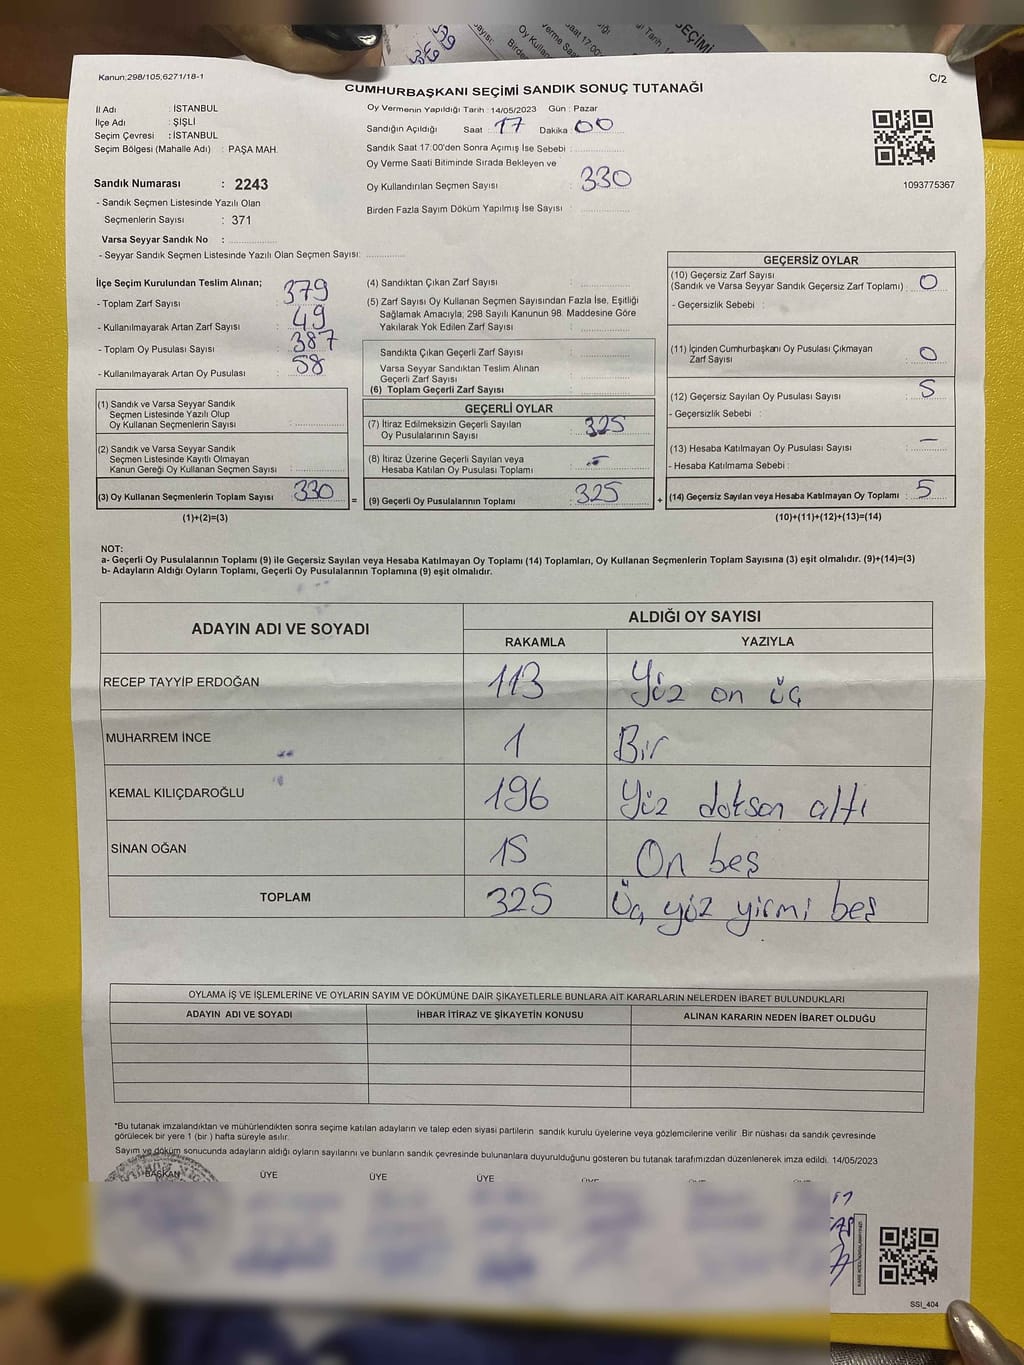 Kanun;298/105,6271/18-1
C/2
CUMHURBAŞKANI SEÇİMİ SANDIK SONUÇ TUTANAĞI
İl Adı : İSTANBUL
İlçe Adı : ŞİŞLİ
Seçim Çevresi : İSTANBUL
Seçim Bölgesi (Mahalle Adı) : PAŞA MAH.
Sandık Numarası : 2243
- Sandık Seçmen Listesinde Yazılı Olan
Seçmenlerin Sayısı : 371
Varsa Seyyar Sandık No :
- Seyyar Sandık Seçmen Listesinde Yazılı Olan Seçmen Sayısı:
Oy Vermenin Yapıldığı Tarih : 14/05/2023 Gün : Pazar
Sandığın Açıldığı Saat : 17 Dakika : 00
Sandık Saat 17:00'den Sonra Açımış İse Sebebi :
Oy Verme Saati Bitiminde Sırada Bekleyen ve
Oy Kullandırılan Seçmen Sayısı : 330
Birden Fazla Sayım Döküm Yapılmış İse Sayısı :
1093775367
İlçe Seçim Kurulundan Teslim Alınan;
- Toplam Zarf Sayısı : 379
- Kullanılmayarak Artan Zarf Sayısı : 49
- Toplam Oy Pusulası Sayısı : 387
- Kullanılmayarak Artan Oy Pusulası : 58
(1) Sandık ve Varsa Seyyar Sandık
Seçmen Listesinde Yazılı Olup
Oy Kullanan Seçmenlerin Sayısı :
(2) Sandık ve Varsa Seyyar Sandık
Seçmen Listesinde Kayıtlı Olmayan
Kanun Gereği Oy Kullanan Seçmen Sayısı :
(3) Oy Kullanan Seçmenlerin Toplam Sayısı : 330
(1)+(2)=(3)
=
(4) Sandıktan Çıkan Zarf Sayısı :
(5) Zarf Sayısı Oy Kullanan Seçmen Sayısından Fazla İse, Eşitliği
Sağlamak Amacıyla; 298 Sayılı Kanunun 98. Maddesine Göre
Yakılarak Yok Edilen Zarf Sayısı :
Sandıkta Çıkan Geçerli Zarf Sayısı :
Varsa Seyyar Sandıktan Teslim Alınan
Geçerli Zarf Sayısı :
(6) Toplam Geçerli Zarf Sayısı :
GEÇERLİ OYLAR
(7) İtiraz Edilmeksizin Geçerli Sayılan
Oy Pusulalarının Sayısı : 325
(8) İtiraz Üzerine Geçerli Sayılan veya
Hesaba Katılan Oy Pusulası Toplamı :
(9) Geçerli Oy Pusulalarının Toplamı : 325
+
GEÇERSİZ OYLAR
(10) Geçersiz Zarf Sayısı
(Sandık ve Varsa Seyyar Sandık Geçersiz Zarf Toplamı) : 0
- Geçersizlik Sebebi :
(11) İçinden Cumhurbaşkanı Oy Pusulası Çıkmayan
Zarf Sayısı : 0
(12) Geçersiz Sayılan Oy Pusulası Sayısı : 5
- Geçersizlik Sebebi :
(13) Hesaba Katılmayan Oy Pusulası Sayısı : —
- Hesaba Katılmama Sebebi :
(14) Geçersiz Sayılan veya Hesaba Katılmayan Oy Toplamı : 5
(10)+(11)+(12)+(13)=(14)
NOT:
a- Geçerli Oy Pusulalarının Toplamı (9) ile Geçersiz Sayılan veya Hesaba Katılmayan Oy Toplamı (14) Toplamları, Oy Kullanan Seçmenlerin Toplam Sayısına (3) eşit olmalıdır. (9)+(14)=(3)
b- Adayların Aldığı Oyların Toplamı, Geçerli Oy Pusulalarının Toplamına (9) eşit olmalıdır.
ADAYIN ADI VE SOYADI
ALDIĞI OY SAYISI
RAKAMLA YAZIYLA
RECEP TAYYİP ERDOĞAN 113 Yüz on üç
MUHARREM İNCE 1 Bir
KEMAL KILIÇDAROĞLU 196 Yüz doksan altı
SİNAN OĞAN 15 On beş
TOPLAM 325 Üç yüz yirmi beş
OYLAMA İŞ VE İŞLEMLERİNE VE OYLARIN SAYIM VE DÖKÜMÜNE DAİR ŞİKAYETLERLE BUNLARA AİT KARARLARIN NELERDEN İBARET BULUNDUKLARI
ADAYIN ADI VE SOYADI İHBAR İTİRAZ VE ŞİKAYETİN KONUSU ALINAN KARARIN NEDEN İBARET OLDUĞU
*Bu tutanak imzalandıktan ve mühürlendikten sonra seçime katılan adayların ve talep eden siyasi partilerin sandık kurulu üyelerine veya gözlemcilerine verilir. Bir nüshası da sandık çevresinde
görülecek bir yere 1 (bir ) hafta süreyle asılır.
Sayım ve döküm sonucunda adayların aldığı oyların sayılarını ve bunların sandık çevresinde bulunanlara duyurulduğunu gösteren bu tutanak tarafımızdan düzenlenerek imza edildi. 14/05/2023
BAŞKAN ÜYE ÜYE ÜYE
SSI_404